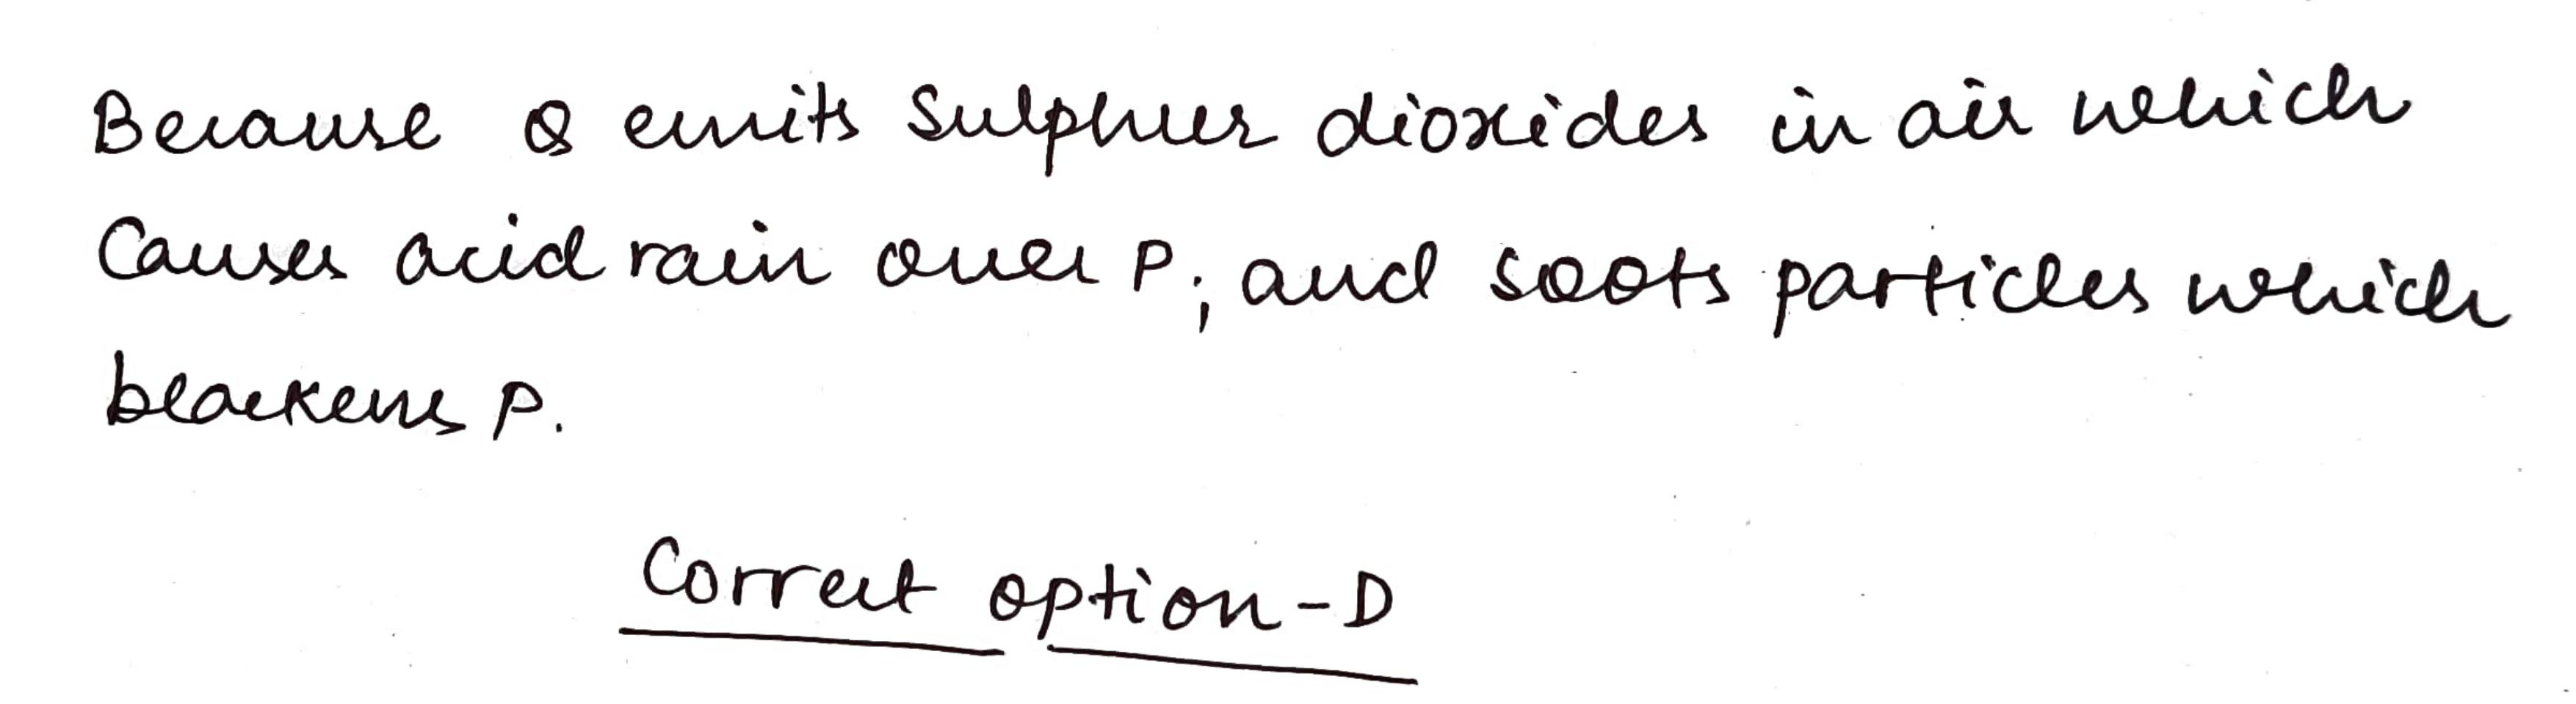 Because Q emits Sulphur dioxides in air which
Causes acid rain over P; and soots particles which
blackens P.
Correct option-D